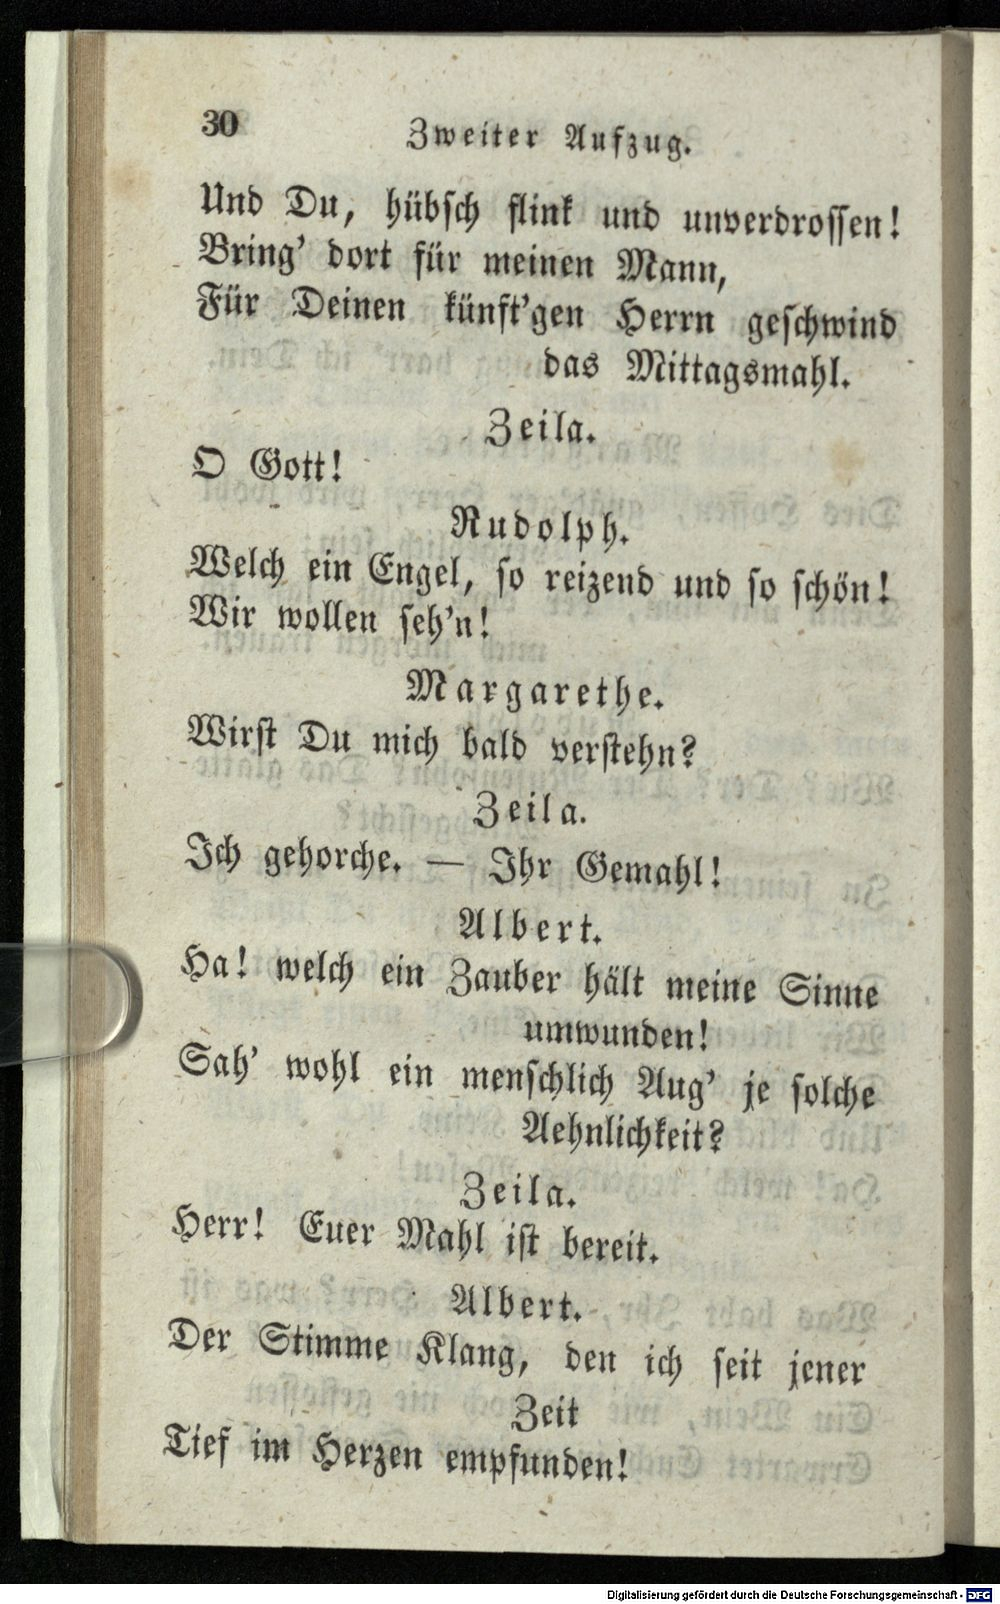 30
Zweiter Aufzug.
Und Du, hübsch flink und unverdrossen!
Bring' dort für meinen Mann,
Für Deinen künft'gen Herrn geschwind
das Mittagsmahl.
Zeila.
O Gott!
Rudolph.
Welch ein Engel, so reizend und so schön!
Wir wollen seh'n!
Margarethe.
Wirst Du mich bald verstehn?
Zeila.
Ich gehorche. — Ihr Gemahl!
Albert.
Ha! welch ein Zauber hält meine Sinne
umwunden!
Sah' wohl ein menschlich Aug' je solche
Aehnlichkeit?
Zeila.
Herr! Euer Mahl ist bereit.
Albert.
Der Stimme Klang, den ich seit jener
Zeit
Tief im Herzen empfunden!
Digitalisierung gefördert durch die Deutsche Forschungsgemeinschaft - DFG